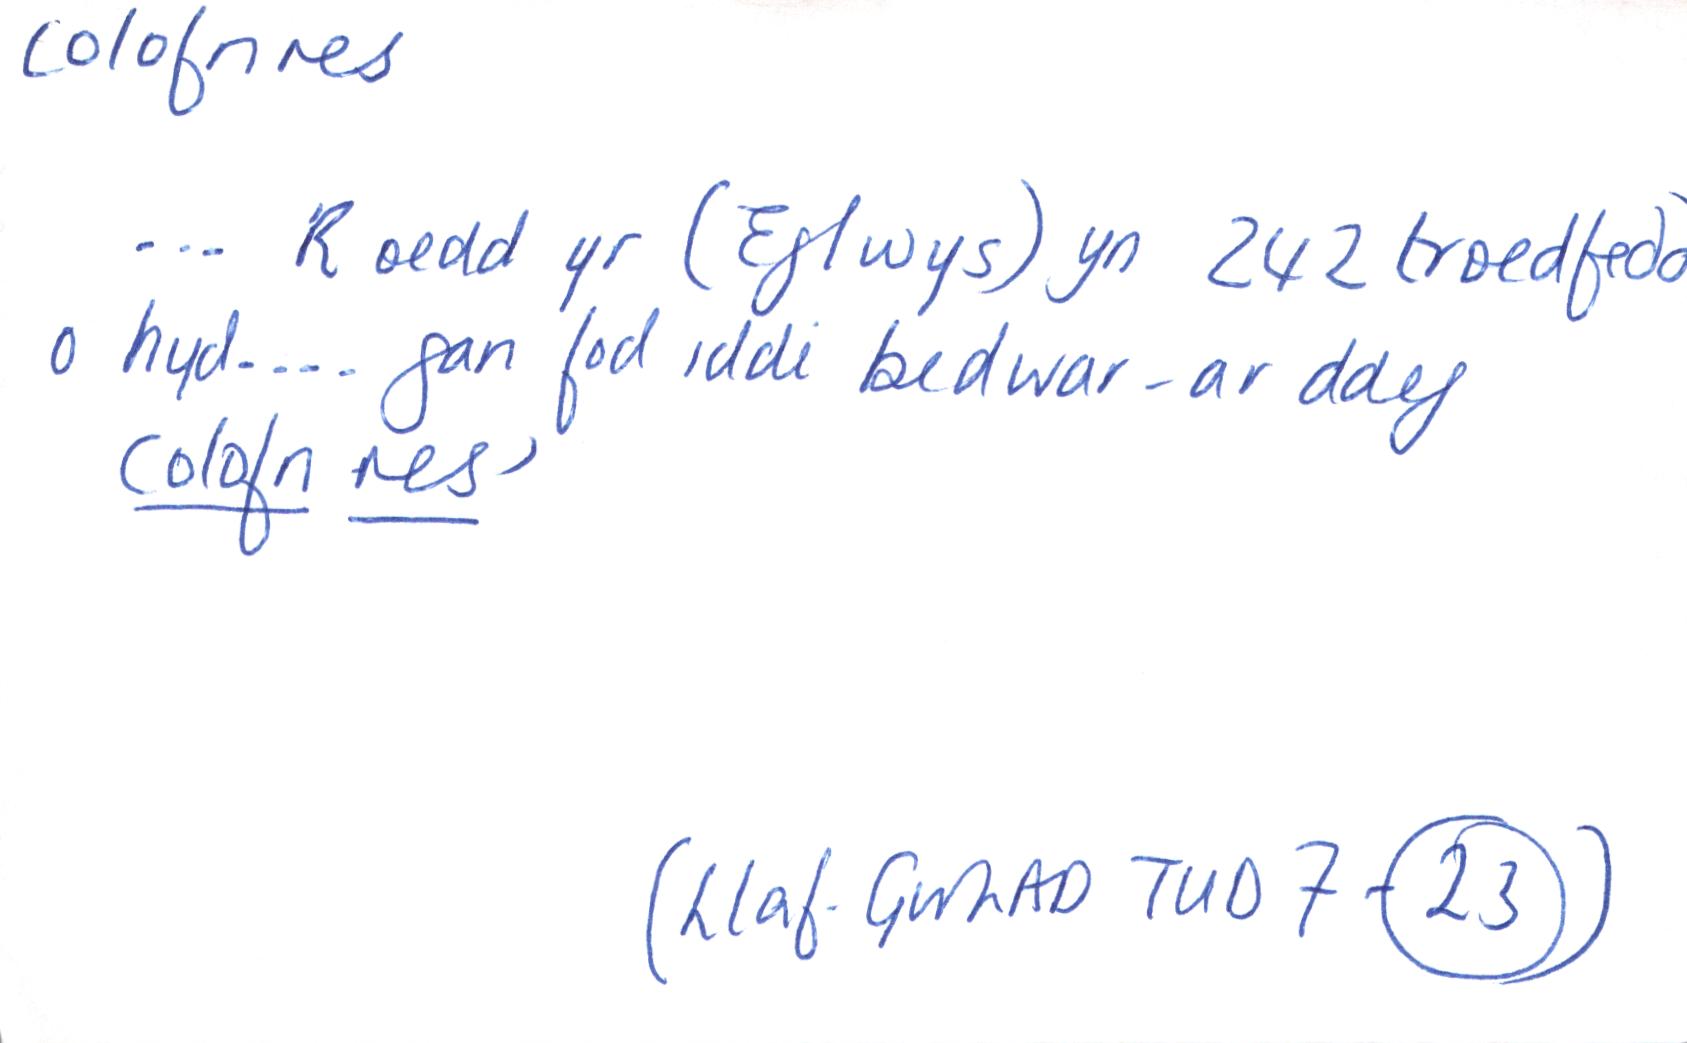 colofnres
.... Roedd yr (Eglwys) yn 242 troedfedd
o hyd.... gan fod iddi bedwar-ar ddeg
colofn res,
(Llaf. GwhAD TUD 7 - 23)